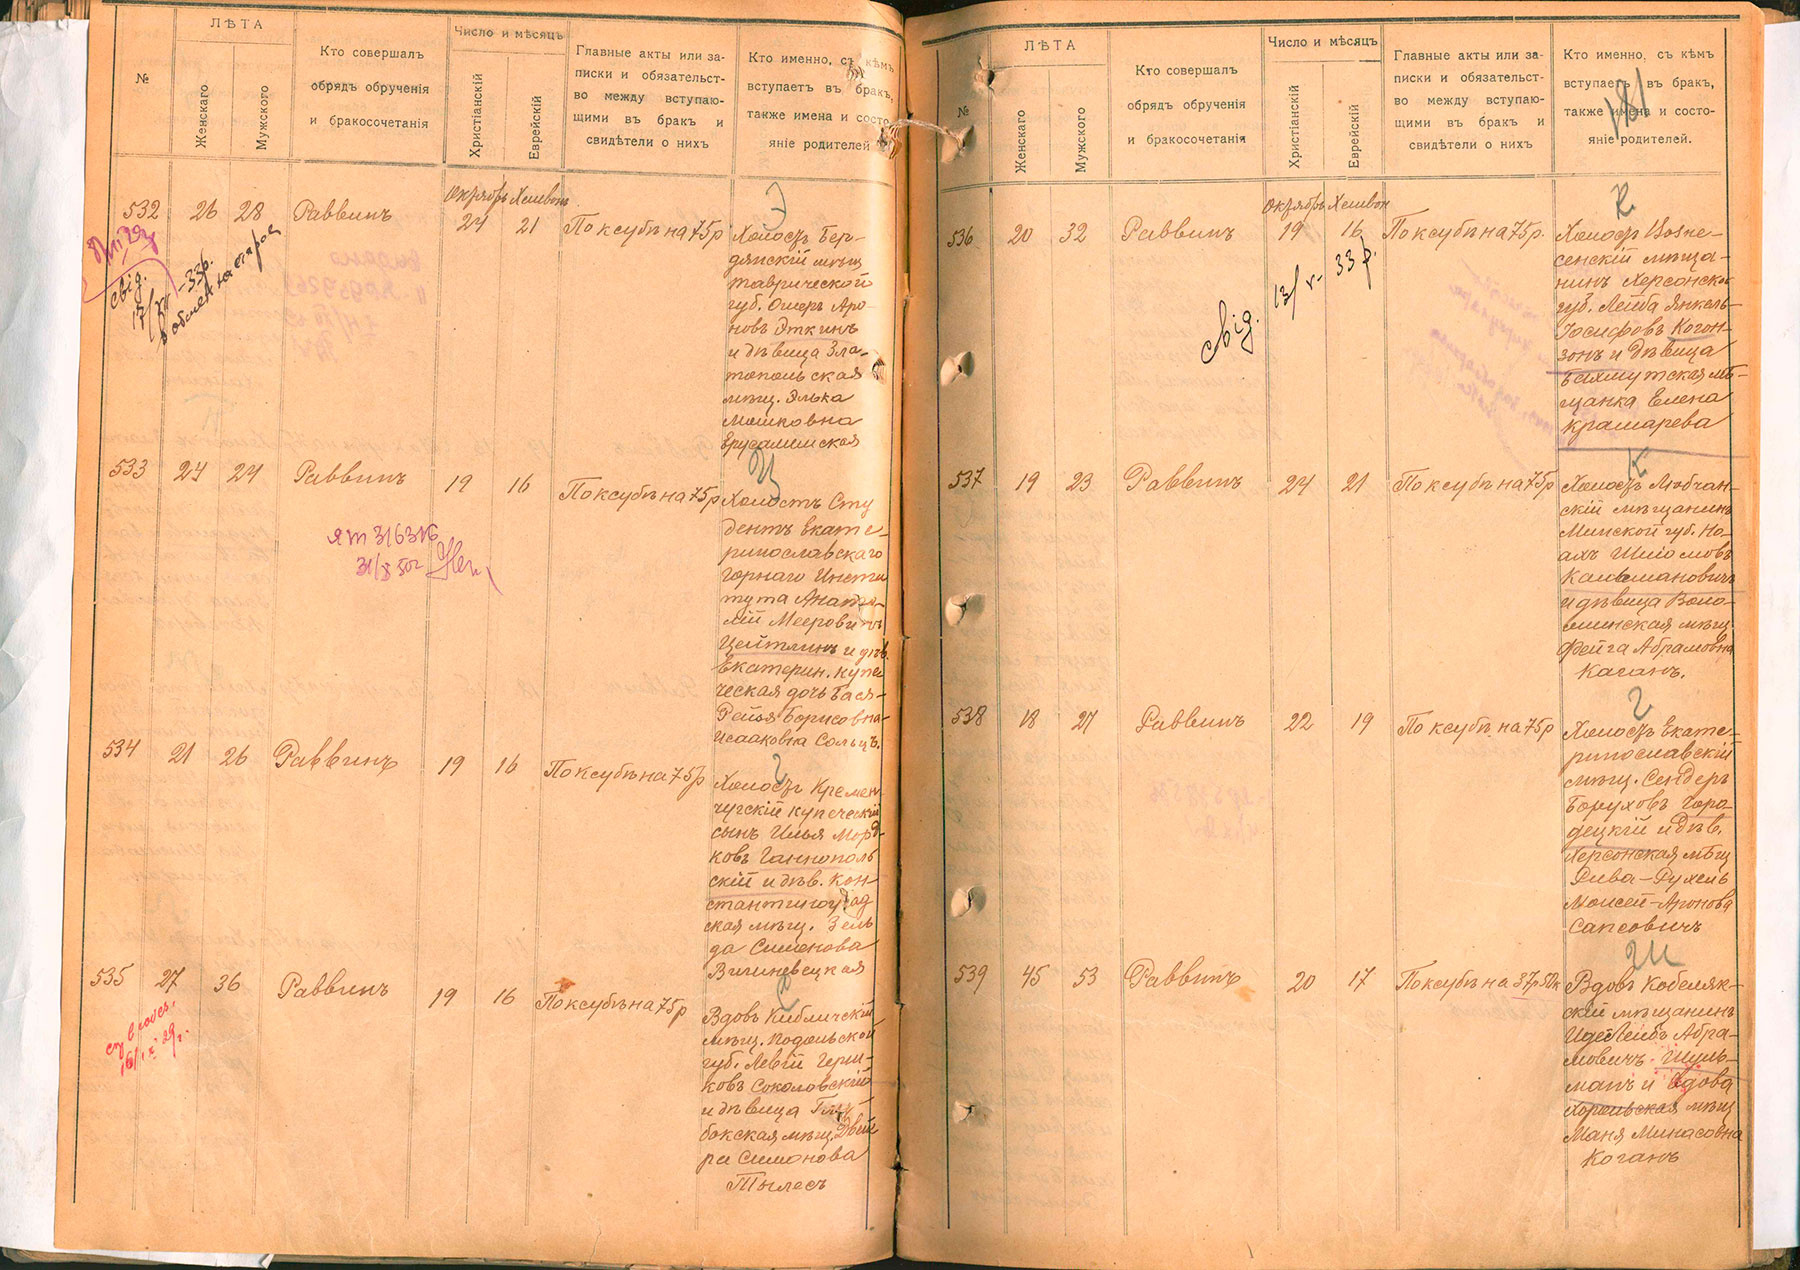 №
ЛѢТА
Женскаго
Мужского
Кто совершалъ
обрядъ обрученія
и бракосочетанія
Число и мѣсяцъ
Христіанскій
Еврейскій
Главные акты или за-
писки и обязательст-
во между вступаю-
щими въ бракъ и
свидѣтели о нихъ
Кто именно, съ кѣмъ
вступаетъ въ бракъ,
также имена и состо-
яніе родителей
Октябрь Хешвонъ
532 26 28 Раввинъ 24 21 По ксубѣ на 75 р
Э
Холостъ Бер-
дянскій мѣщ
таврической
губ. Ошеръ Аро-
новъ Эткинъ
и дѣвица Зла-
топольская
мѣщ. Элька
Мошковна
Ерусалимская
свід.
17/XII -33р.
обмен на старое
533 24 24 Раввинъ 19 16 По ксубѣ на 75 р
Ц
Холостъ Сту
дентъ Екате-
ринославскаго
Горнаго Инсти
тута Анато-
лій Мееровичъ
Цейтлинъ и дѣв.
Екатерин. купе
ческая дочь Бася-
Рейзя Борисовна-
Исааковна Сольцъ.
ЯТ 316316
31/X 50г
534 21 26 Раввинъ 19 16 По ксубѣ на 75 р
Г
Холостъ Кремен
чугскій купеческій
сынъ Илья Морд-
ковъ Ганнополь
скій и дѣв. Кон-
стантиноград
ская мѣщ. Зель
да Сименова
Вишневецкая
535 27 36 Раввинъ 19 16 По ксубѣ на 75 р
С
Вдовъ Кибличскій
мѣщ. Подольской
губ. Левій Герш-
ковъ Соколовскій
и дѣвица Глу-
бокская мѣщ. Двей
ра Симонова
Тылесъ
№
ЛѢТА
Женскаго
Мужского
Кто совершалъ
обрядъ обрученія
и бракосочетанія
Число и мѣсяцъ
Христіанскій
Еврейскій
Главные акты или за-
писки и обязательст-
во между вступаю-
щими въ бракъ и
свидѣтели о нихъ
Кто именно, съ кѣмъ
вступаетъ въ бракъ,
также имена и состо-
яніе родителей.
181
Октябрь Хешвон
536 20 32 Раввинъ 19 16 По ксубѣ на 75 р.
К
Холостъ Возне-
сенскій мѣща-
нинъ Херсонской
губ. Лейба Янкель-
Іосифовъ Когон-
зонъ и дѣвица
Бахмутская мѣ-
щанка Елена
Крамарева
свід. 13/V- 33 р.
537 19 23 Раввинъ 24 21 По ксубѣ на 75 р
К
Холостъ Любчан-
скій мѣщанинъ
Минской губ. Но-
ахъ Шломовъ
Кальмановичъ
и дѣвица Воло-
жинская мѣщ.
Фейга Абрамовна
Каганъ.
538 18 27 Раввинъ 22 19 По ксубѣ на 75 р
Г
Холостъ Екате-
ринославскій
мѣщ. Сендеръ
Боруховъ Горо-
децкій и дѣв.
Херсонская мѣщ
Рива-Рухель
Моисей-Аронова
Сапсовичъ
539 45 53 Раввинъ 20 17 По ксубѣ на 37р 50к
Ш
Вдовъ Кобеляк-
скій мѣщанинъ
Идель Лейбъ Абра-
мовичъ Шуль-
манъ и вдова
Хорольская мѣщ
Маня Минасовна
Коганъ